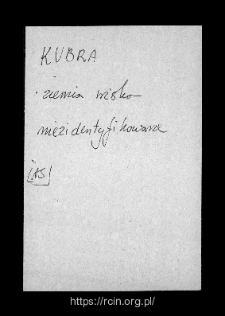 KUBRA
ziemia wiska
niezidentyfikowana
[AS]
https://rcin.org.pl/